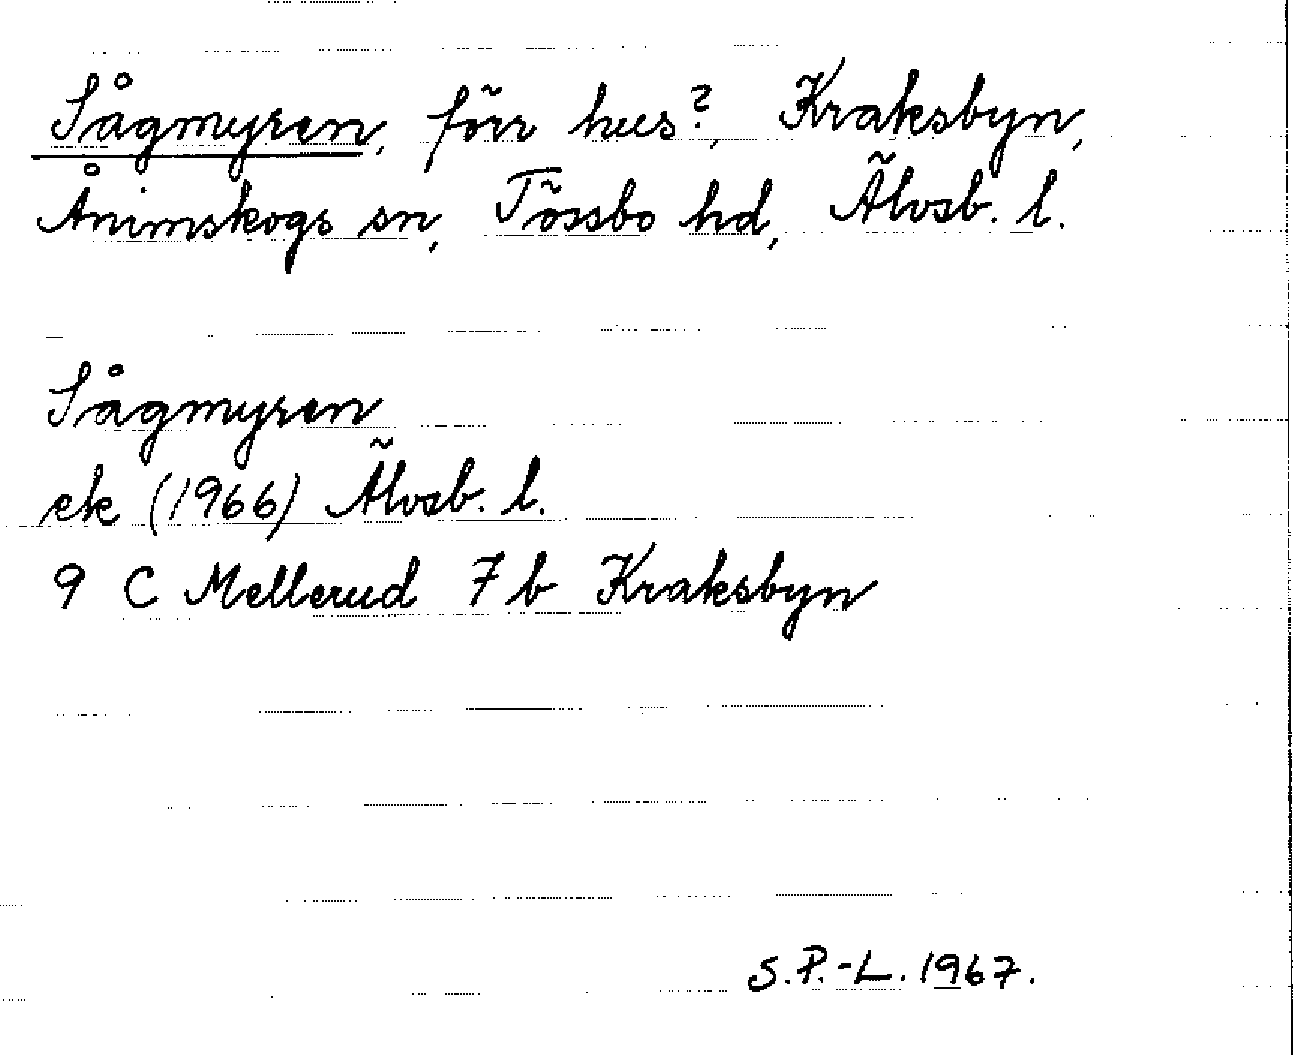 Sågmyren, förr hus?, Kraksbyn,
Ånimskogs sn, Tössbo hd, Älvsb. l.
Sågmyren
ek (1966) Älvsb. l.
9 C Mellerud 7 b Kraksbyn
S.P.-L. 1967.